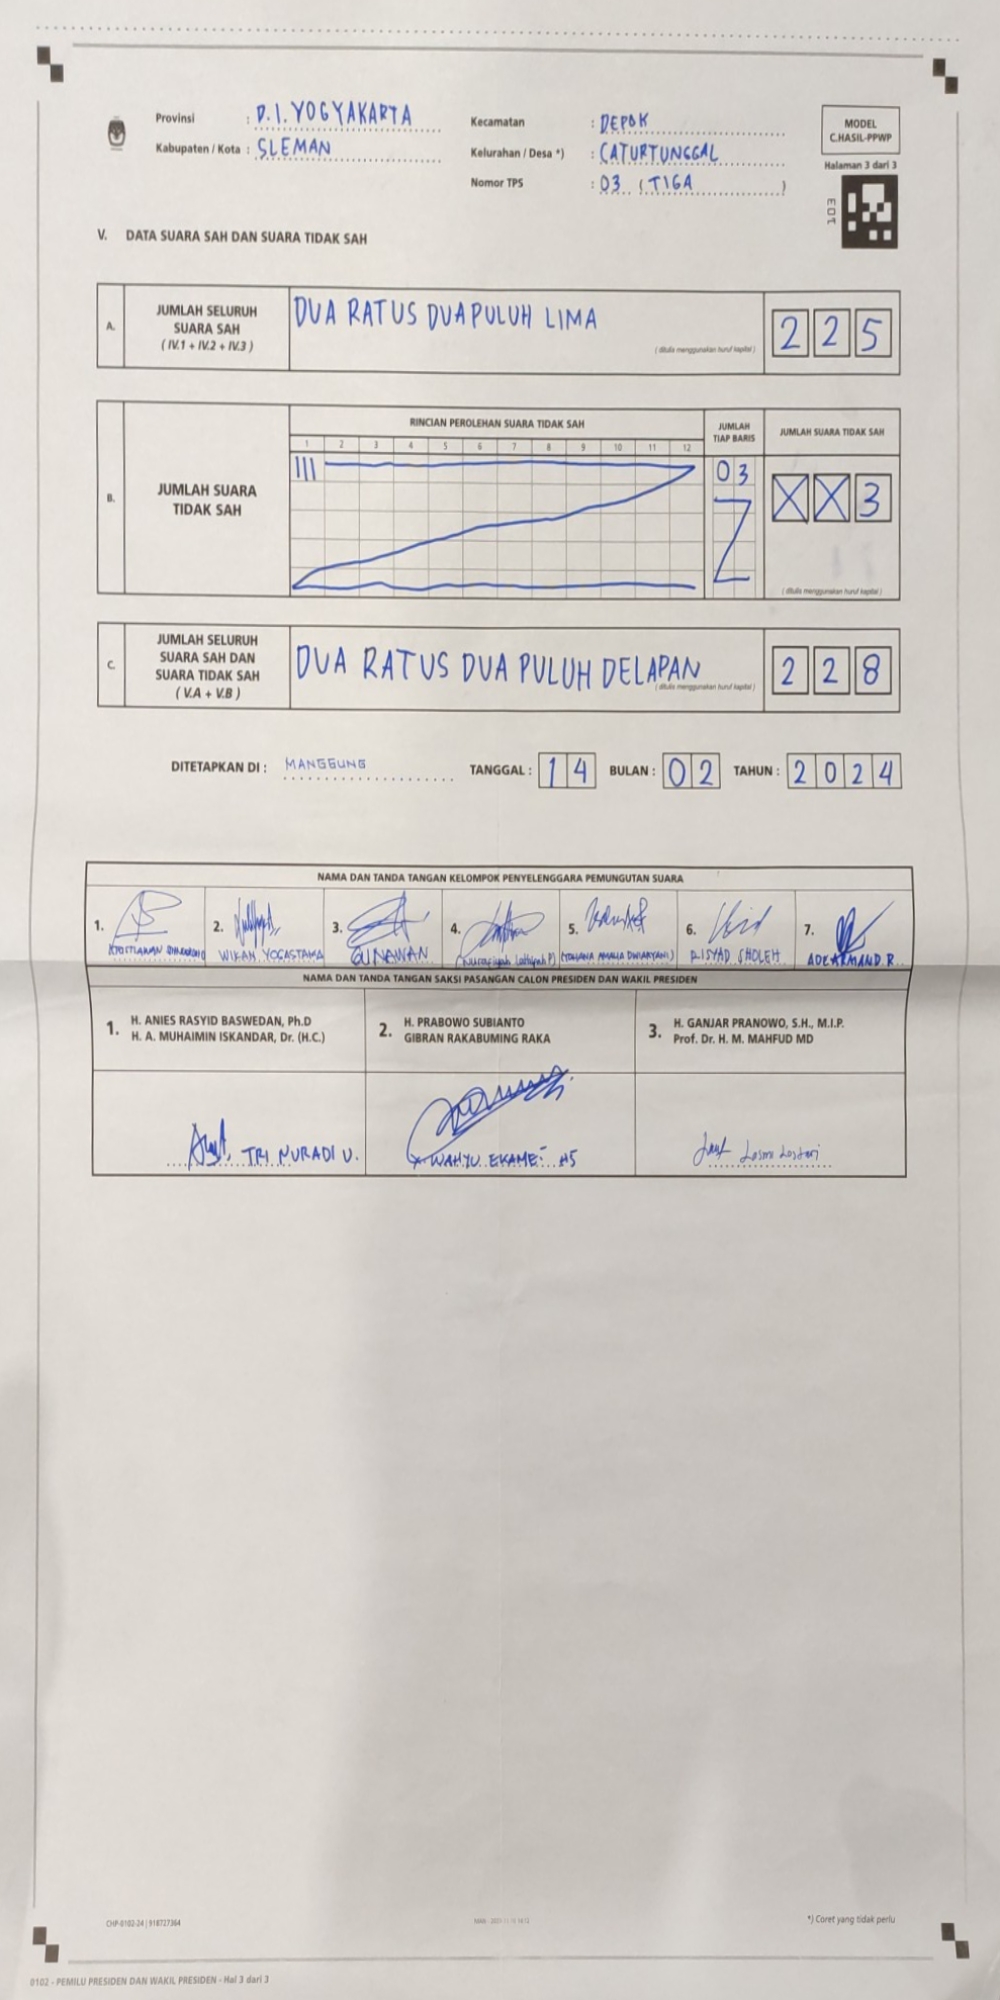 Provinsi : D.I. YOGYAKARTA
Kabupaten / Kota : SLEMAN
Kecamatan : DEPOK
Kelurahan / Desa *) : CATURTUNGGAL
Nomor TPS : 03 ( TIGA )
MODEL
C.HASIL-PPWP
Halaman 3 dari 3
103
V. DATA SUARA SAH DAN SUARA TIDAK SAH
A. JUMLAH SELURUH
SUARA SAH
( IV.1 + IV.2 + IV.3 )
DUA RATUS DUA PULUH LIMA
( ditulis menggunakan huruf kapital )
2 2 5
B. JUMLAH SUARA
TIDAK SAH
RINCIAN PEROLEHAN SUARA TIDAK SAH
1 2 3 4 5 6 7 8 9 10 11 12
III
JUMLAH
TIAP BARIS
03
JUMLAH SUARA TIDAK SAH
X X 3
( ditulis menggunakan huruf kapital )
C. JUMLAH SELURUH
SUARA SAH DAN
SUARA TIDAK SAH
( V.A + V.B )
DUA RATUS DUA PULUH DELAPAN
( ditulis menggunakan huruf kapital )
2 2 8
DITETAPKAN DI : MANGGUNG TANGGAL : 14 BULAN : 02 TAHUN : 2024
NAMA DAN TANDA TANGAN KELOMPOK PENYELENGGARA PEMUNGUTAN SUARA
1. 2. 3. 4. 5. 6. 7.
WIKAN YOGASTAMA GUNAWAN RISYAD SHOLEH ADE ARMAND R.
NAMA DAN TANDA TANGAN SAKSI PASANGAN CALON PRESIDEN DAN WAKIL PRESIDEN
1. H. ANIES RASYID BASWEDAN, Ph.D
H. A. MUHAIMIN ISKANDAR, Dr. (H.C.)
2. H. PRABOWO SUBIANTO
GIBRAN RAKABUMING RAKA
3. H. GANJAR PRANOWO, S.H., M.I.P.
Prof. Dr. H. M. MAHFUD MD
TRI NURADI U.
WAHYU
Lestari
CHP-0102-24 | 918727364
*) Coret yang tidak perlu
0102 - PEMILU PRESIDEN DAN WAKIL PRESIDEN - Hal 3 dari 3